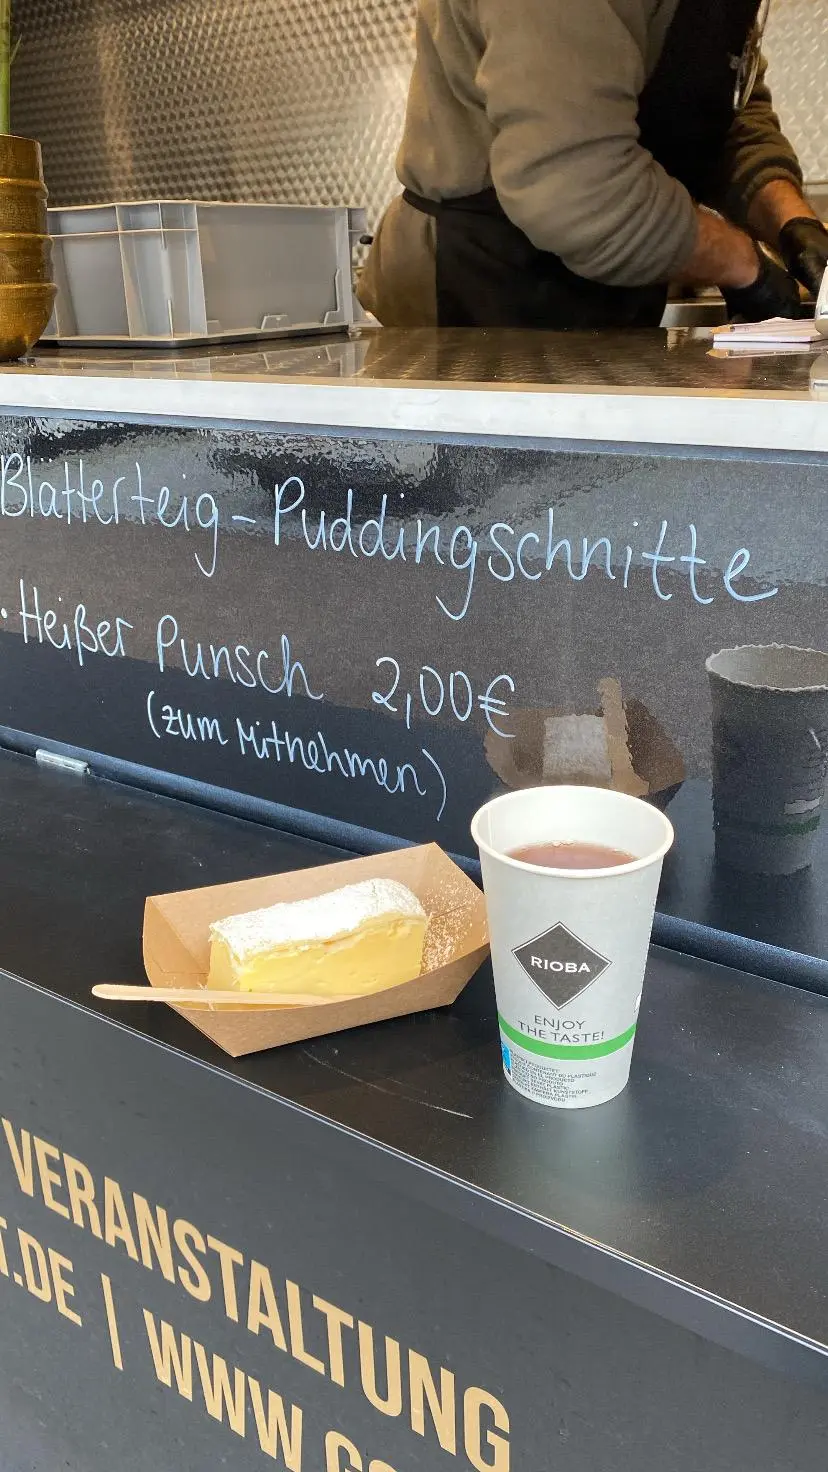 Blätterteig-Puddingschnitte
· Heißer Punsch 2,00€
(zum Mitnehmen)
RIOBA
ENJOY
THE TASTE!
VERANSTALTUNG
T.DE | WWW.GO